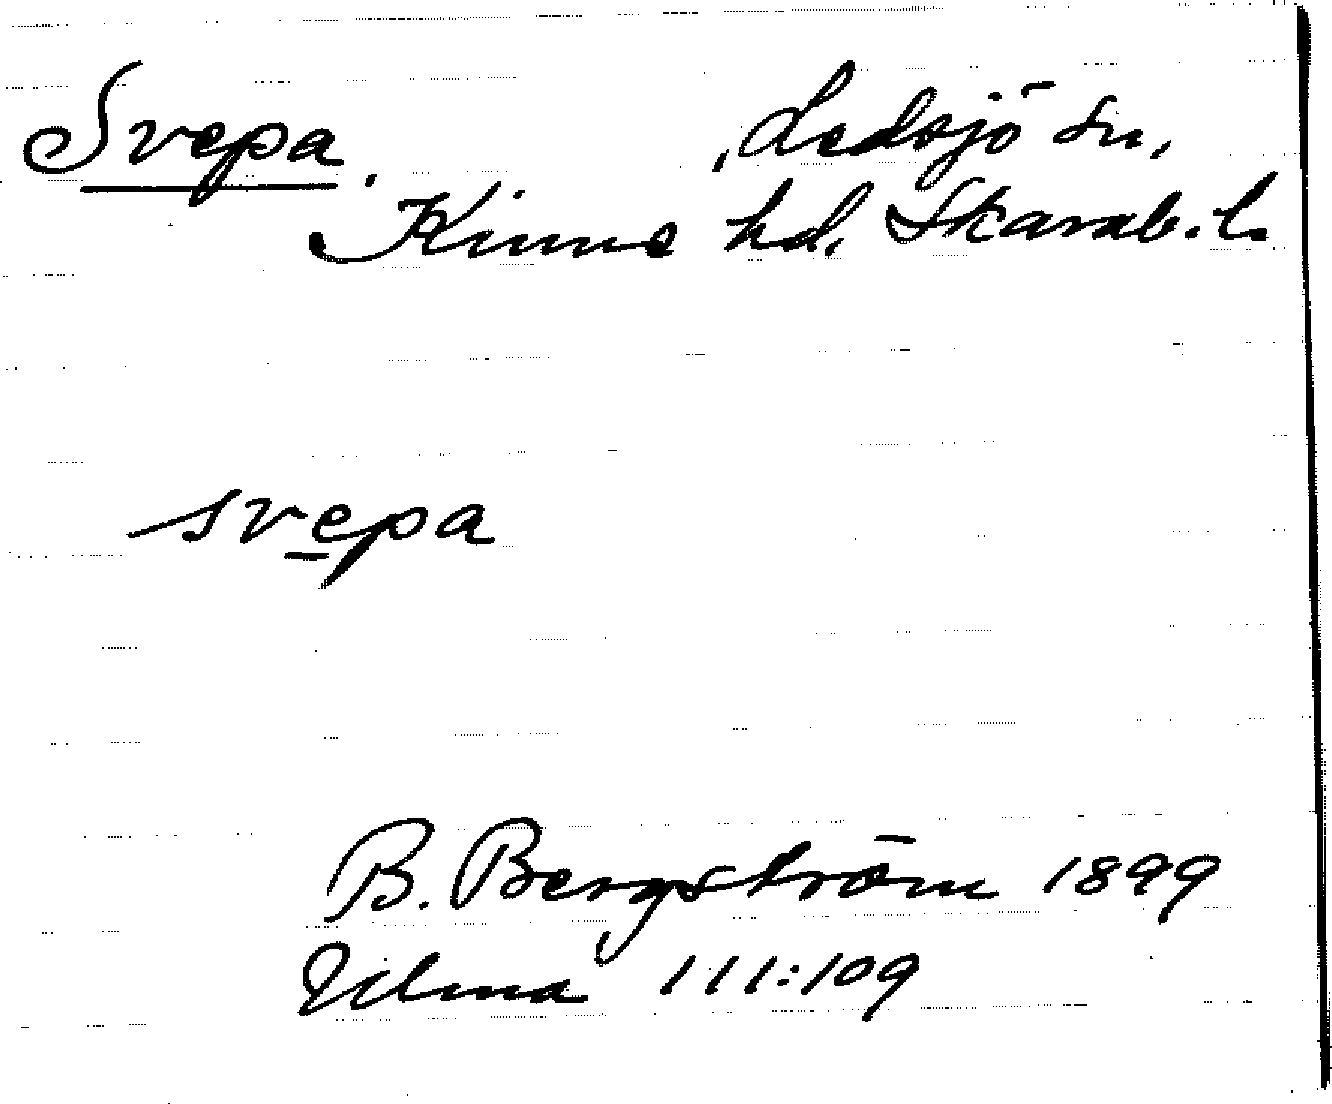 Svepa. Ledsjö sn,
Kinne hd. Skarab. l.
svepa
B. Bergström 1899
Ulma 111:109